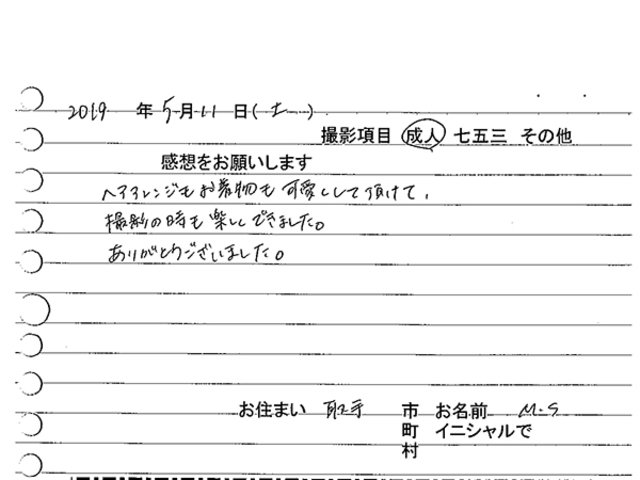 2019 年 5月 11 日(土)
撮影項目 成人 七五三 その他
感想をお願いします
ヘアアレンジもお着物も可愛くして頂けて、
撮影の時も楽しくできました。
ありがとうございました。
お住まい 取手 市 お名前 M.S
町 イニシャルで
村